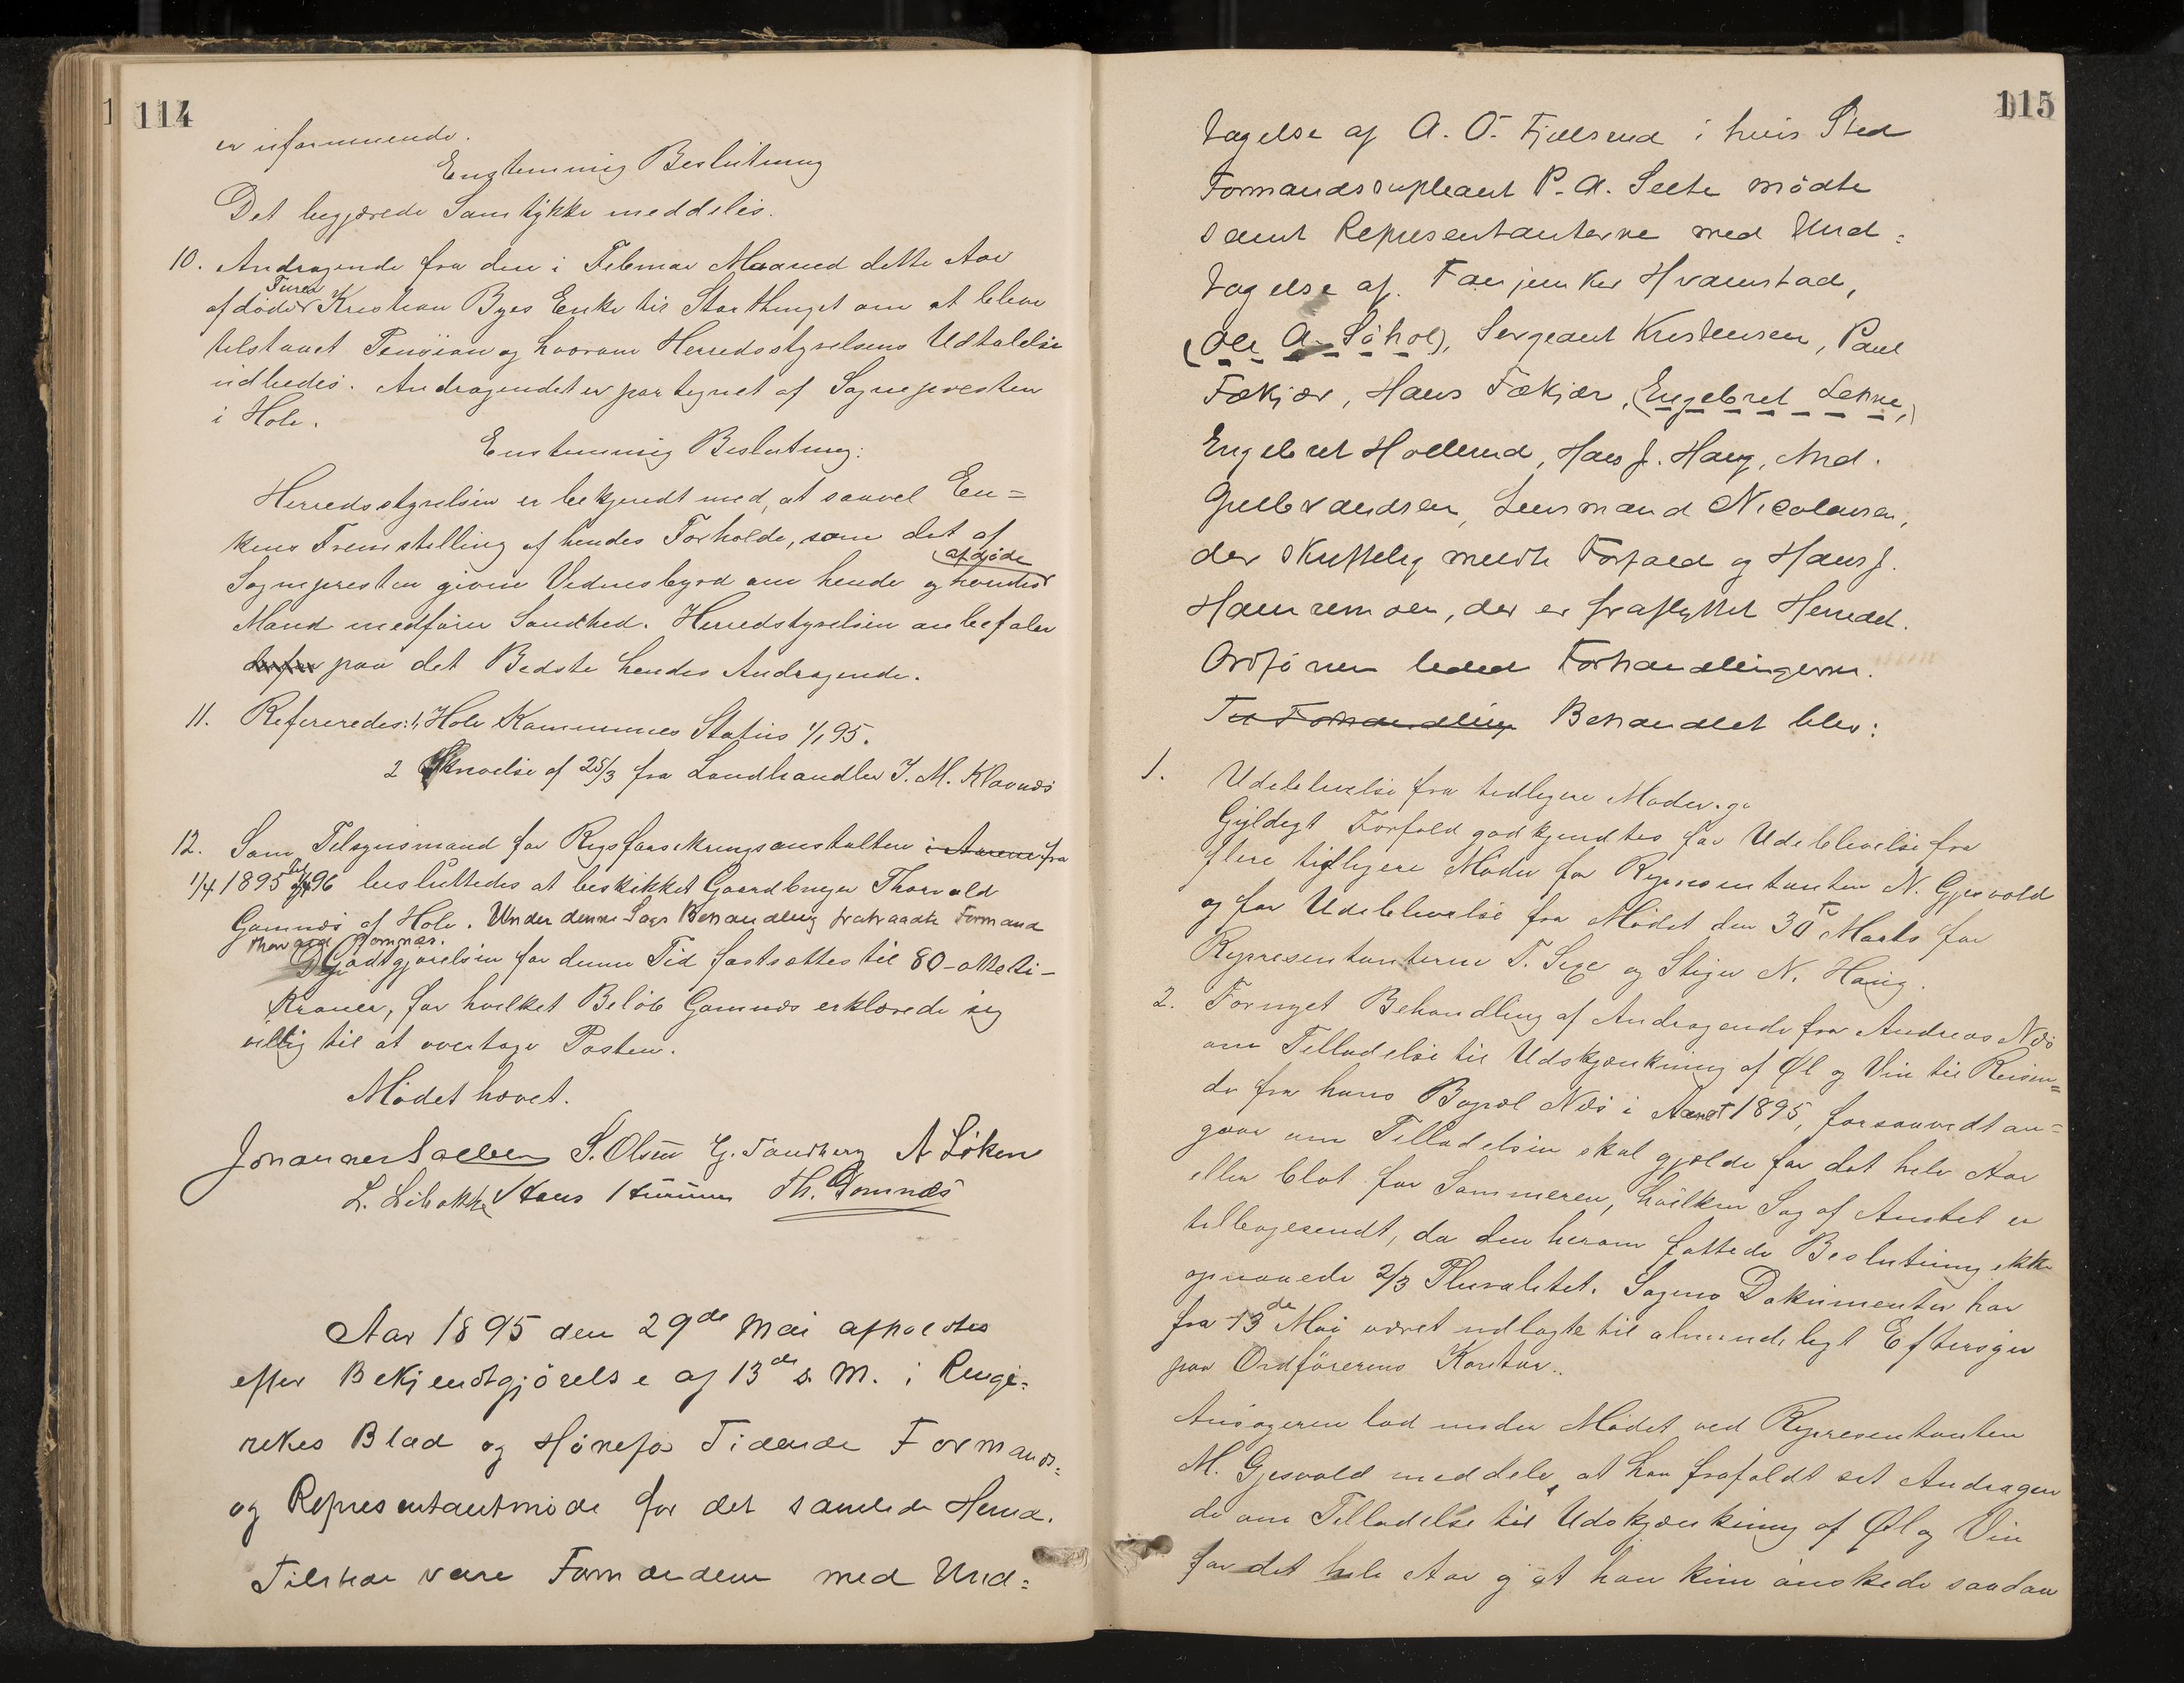 114
er uformuende.
Enstemmig Beslutning
Det begjærede Samtykke meddeles.
10. Andragende fra den i Februar Maaned dette Aar
afdöde Furer Kristian Byes Enke til Storthinget om at blive
tilstaaet Pension og hvorom Herredsstyrelsens Udtalelse
udbedes. Andragendet er paategnet af Sognepresten
i Hole.
Enstemmig Beslutning:
Herredsstyrelsen er bekjendt med, at saavel En=
kens Fremstilling af hendes Forholde, som det af
Sognepresten givne Vidnesbyrd om hende og hendes afdøde
Mand medförer Sandhed. Herredstyrelsen anbefaler
paa det Bedste hendes Andragende.
11. Refereredes: 1, Hole Kommunes Status 1/1 95.
2 Skrivelse af 25/3 fra Landhandler J. M. Klovnæs
12. Som Tilsynsmand for Rigsforsikringsanstalten i Aarene fra
1/4 1895 til 1/4 96 besluttedes at beskikket Gaardbruger Thorvald
Gomnæs af Hole. Under denne Sags Behandling fratraadte Formand
Thorvald Gomnæs.
Godtgjørelsen for denne Tid fastsættes til 80 - otteti -
Kroner, for hvilket Belöb Gomnæs erklærede sig
villig til at overtage Posten.
Mödet hævet.
Johannes Sælben S. Olsen G. Sandberg A Löken
L. Libakke Hans Hurum Th. Gomnæs
Aar 1895 den 29de Mai afholdtes
efter Bekjendtgjörelse af 13de s. M. i Ringe=
rikes Blad og Hönefos Tidende Formands=
og Representantmöde for det samlede Herred.
Tilstede vare Formændene med Und=
115
tagelse af A. O. Fjeldstad i hvis Sted
Formandssupleant P. A. Sæte mödte
samt Representanterne med Und=
tagelse af. Fanejunker Hvamstad,
(Ole A. Söhol), Sergeant Kristensen, Paul
Fækjær, Hans Fækjær, (Engebret Lehne,)
Engebret Hollerud, Hans J. Haug, And.
Gulbrandsen, Lensmand Nicolaisen,
der skriftelig meldte Forfald og Hans J.
Hamremoen, der er fraflyttet Herredet.
Ordförren leded Forhandlingerne.
Til Forhandling Behandlet blev:
1. Udeblivelse fra tidligere Moder.
Gyldigt Forfald godkjendtes for Udeblivelse fra
flere tidligere Möder for Representanten N. Gjesvold
og for Udeblivelse fra Mödet den 30te Marts for
Representanterne T. Sexe og Stiger N. Haug.
2. Fornyet Behandling af Andragende fra Andreas Næs
om Tilladelse til Udskjænkning af Øl og Vin til Reisen=
de fra hans Bopæl Næs i Aaret 1895, forsaavidt an=
gaar om Tilladelsen skal gjælde for det hele Aar
eller blot for Sommeren, hvilken Sag af Amtet er
tilbagesendt, da den herom fattede Beslutning ikke
opnaaede 2/3 Pluralitet. Sagens Dokumenter har
fra 13de Mai været udlagte til almindeligt Eftersyn
paa Ordförerens Kontor.
Ansögeren lod under Mödet ved Representanten
M. Gjesvold meddele, at han frafaldt sit Andragen
de om Tilladelse til Udskjænkning af Øl og Vin
for det hele Aar og at han kun önskede saadan